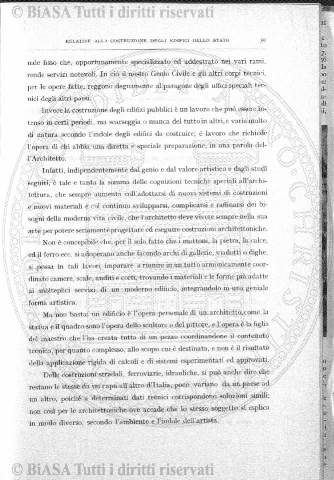 © BiASA Tutti i diritti riservati
RELATIVE ALLA COSTRUZIONE DEGLI EDIFICI DELLO STATO
nale fisso che, opportunamente specializzato ed addestrato nei vari rami,
rende servizi notevoli. In ciò il nostro Genio Civile e gli altri corpi tecnici,
per le opere fatte, reggono degnamente al paragone degli uffici speciali tec-
nici degli altri paesi.
Invece la costruzione degli edifici pubblici è un lavoro che può essere in-
tenso in certi periodi, ma scarseggia o manca del tutto in altri, e varia molto
di natura secondo l'indole degli edifici da costruire; è lavoro che richiede
l'opera di chi abbia una diretta e speciale preparazione, in una parola del-
l'Architetto.
Infatti, indipendentemente dal genio e dal valore artistico e dagli studi
seguiti, è tale e tanta la somma delle cognizioni tecniche speciali all'archi-
tettura, che sempre aumenta coll'adottarsi di nuovi sistemi di costruzioni
e nuovi materiali e col continuo svilupparsi, complicarsi e raffinarsi dei bi-
sogni della moderna vita civile, che l'architetto deve vivere sempre nella sua
arte per potere seriamente progettare ed eseguire costruzioni architettoniche.
Non è concepibile che, per il solo fatto che i mattoni, la pietra, la calce,
ed il ferro ecc. si adoperano anche facendo archi di gallerie, viadotti o dighe,
si possa in tali lavori imparare a riunire in un tutto armonicamente coor-
dinato camere, scale, anditi e corti, trovando i materiali e le forme più adatte
ai molteplici servizi di un moderno edificio, integrandolo in una geniale
forma artistica.
Ma non basta: un edificio è l'opera personale di un architetto, come la
statua e il quadro sono l'opera dello scultore o del pittore, e l'opera è la figlia
del maestro che l'ha creata tutto di un pezzo coordinandone il contenuto
tecnico, per quanto complesso, allo scopo cui è destinata, e non è il risultato
della applicazione rigida di calcoli e di sistemi esperimentati ed approvati.
Delle costruzioni stradali, ferroviarie, idrauliche, si può anche dire che
restano le stesse da un capo all'altro d'Italia, poco variano da un paese ad
un altro, poichè a determinati dati tecnici corrispondono soluzioni simili;
non così per le architettoniche ove accade che lo stesso soggetto si esplica
in modo diverso, secondo l'ambiente e l'indole dell'artista.
© BiASA Tutti i diritti riservati